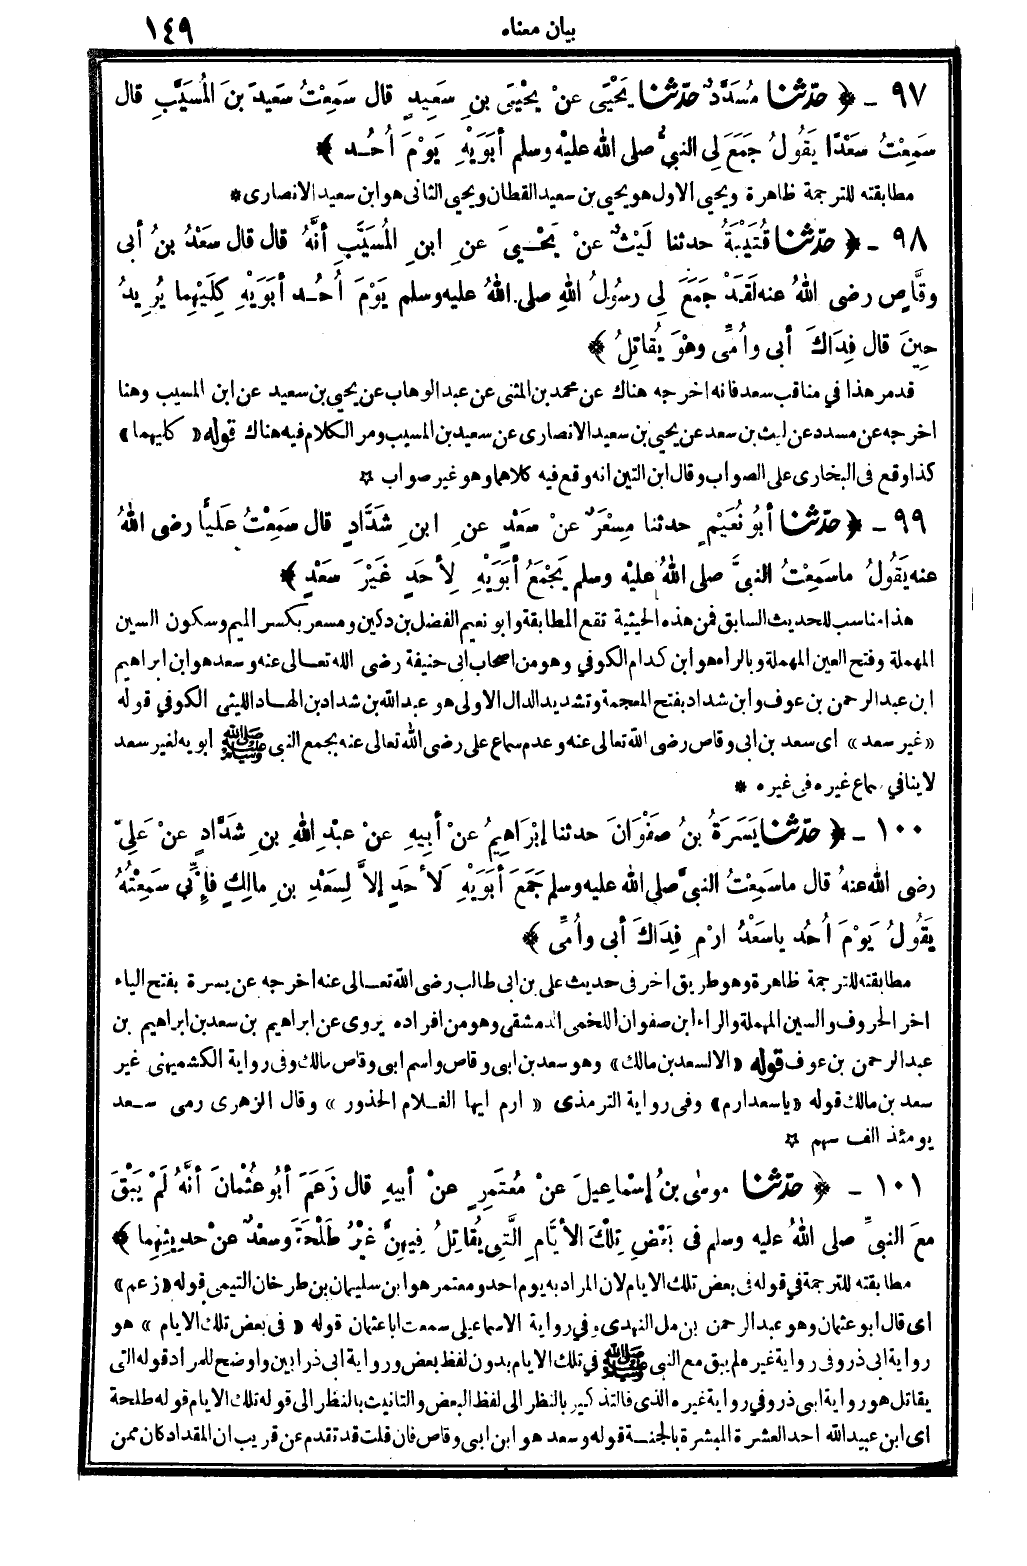 بيان معناه ١٤٩
٩٧ - ﴿ حدّثنا مُسَدَّدٌ حدّثنا يَحْيَى عنْ يحْيَى بنِ سَعِيدٍ قال سَمِعْتُ سَعِيدَ بنَ المُسَيَّبِ قال
سَمِعْتُ سَعْدًا يَقُولُ جَمَعَ لِى النبيُّ صلى الله عليْه وسلم أبَوَيْهِ يَوْمَ أُحُـد ﴾
مطابقته للترجمة ظاهرة ويحيى الاول هو يحيى بن سعيد القطان ويحيى الثانى هو ابن سعيد الانصارى *
٩٨ - ﴿ حدّثنا قُتَيْبَةُ حدثنا لَيْثٌ عنْ يَحْـيَ عنِ ابنِ المُسَيَّبِ أنَّهُ قال قال سَعْدُ بنُ أبى
وقَّاصٍ رضى اللهُ عنه لَقَدْ جَمَعَ لِى رسُولُ اللهِ صلى اللهُ عليه وسلم يَوْمَ أُحُـد أبَوَيْهِ كِلَيْهِما يُرِيدُ
حِينَ قال فِدَاكَ أبى وأُمِّى وهْوَ يُقاتِلُ ﴾
قد مر هذا في مناقب سعد فانه اخرجه هناك عن محمد بن المثنى عن عبد الوهاب عن يحيى بن سعيد عن ابن المسيب وهنا
اخرجه عن مسدد عن ليث بن سعد عن يحيى بن سعيد الانصارى عن سعيد بن المسيب ومر الكلام فيه هناك قوله « كليهما »
كذا وقع فى البخارى على الصواب وقال ابن التين انه وقع فيه كلاهما وهو غير صواب ☆
٩٩ - ﴿ حدّثنا أبُو نُعَيْمٍ حدثنا مِسْعَرٌ عنْ سَعْدٍ عنِ ابنِ شَدَّادٍ قال سَمِعْتُ عَلَيًّا رضى اللهُ
عنه يَقُولُ ماسَمِعْتُ النبيَّ صلى اللهُ عليْه وسلم يَجْمَعُ أبَوَيْهِ لِأحَدٍ غَيْرَ سَعْدٍ ﴾
هذا مناسب للحديث السابق فمن هذه الحيثية تقع المطابقة وابو نعيم الفضل بن دكين ومسعر بكسر الميم وسكون السين
المهملة وفتح العين المهملة وبالراء هو ابن كدام الكوفي وهو من اصحاب ابى حنيفة رضى الله تعـالى عنه وسعد هو ابن ابراهيم
ابن عبد الرحمن بن عوف وابن شداد بفتح المعجمة وتشديد الدال الاولى هو عبد الله بن شداد بن الهـاد الليثى الكوفي قوله
« غير سعد » اى سعد بن ابى وقاص رضى الله تعالى عنه وعدم سماع على رضى الله تعالى عنه بجمع النبى ﷺ ابويه لغير سعد
لاينافي سماع غيره فى غيره *
١٠٠ - ﴿ حدّثنا يَسَرَةُ بنُ صَفْوَانَ حدثنا إبْرَاهِيمُ عنْ أبِيهِ عنْ عبْدِ اللهِ بنِ شَدَّادٍ عنْ عَلِيٍّ
رضى الله عنهُ قال ماسَمِعْتُ النبيَّ صلى الله عليه وسلم جَمَعَ أبَوَيْهِ لأحَدٍ إلاَّ لِسَعْدِ بنِ مالِكٍ فإنِّى سَمِعْتُهُ
يَقُولُ يَوْمَ أُحُد ياسَعْدُ ارْمِ فِدَاكَ أبى وأُمِّى ﴾
مطابقته للترجمة ظاهرة وهو طريق اخر فى حديث على بن ابى طالب رضى الله تعـالى عنه اخرجه عن يسرة بفتح الياء
اخر الحروف والسين المهملة والراء ابن صفوان اللخمى الدمشقى وهو من افراده يروى عن ابراهيم بن سعد بن ابراهيم بن
عبد الرحمن بن عوف قوله « الا لسعد بن مالك » وهو سعد بن ابى وقاص واسم ابى وقاص مالك وفى رواية الكشميهنى غير
سعد بن مالك قوله « ياسعد ارم » وفى رواية الترمذى « ارم ايها الغـلام الحذور » وقال الزهرى رمى سـعد
يومئذ الف سهم ☆
١٠١ - ﴿ حدّثنا موسى بنُ إسْماعِيلَ عنْ مُعْتَمِرٍ عنْ أبيهِ قال زَعَمَ أبُو عُثْمانَ أنَّهُ لَمْ يَبْقَ
معَ النبيِّ صلى اللهُ عليه وسلم فى بَعْضِ تِلْكَ الأيَّامِ الَّتِى يُقاتِلُ فِيهِنَّ غيْرُ طَلْحَةَ وسَعْدٌ عنْ حدِيثِهِما ﴾
مطابقته للترجمة في قوله فى بعض تلك الايام لان المراد به يوم احد ومعتمر هو ابن سليمان بن طرخان التيمى قوله « زعم »
اى قال ابو عثمان وهو عبد الرحمن بن مل النهدى وفي رواية الاسماعيلى سمعت اباعثمان قوله « فى بعض تلك الايام » هو
رواية ابى ذر وفى رواية غيره لم يبق مع النبى ﷺ في تلك الايام بدون لفظ بعض ورواية ابى ذر ابين واوضح للمراد قوله التى
يقاتل هو رواية ابى ذر وفي رواية غيره الذى فالتذكير بالنظر الى لفظ البعض والتانيث بالنظر الى قوله تلك الايام قوله طلحة
اى ابن عبيد الله احد العشرة المبشرة بالجنـة قوله وسعد هو ابن ابى وقاص فان قلت قد تقدم عن قريب ان المقداد كان ممن